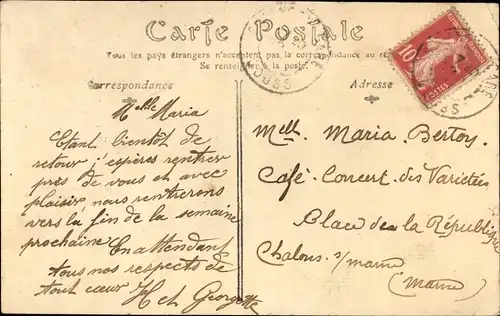 Carte Postale
Tous les pays étrangers n'acceptent pas la correspondance au
Se renseigner à la poste.
Correspondance
Adresse
10
POSTES
Melle Maria
Etant bientôt de
retour j'espères rentrer
près de vous et avec
plaisir, nous rentrerons
vers la fin de la semaine
prochaine En attendant
tous nos respects de
tout cœur H et Georgette
Melle Maria Bertoy
Café-Concert des Varietées
Place de la République
Chalons s/marne
(Marne)